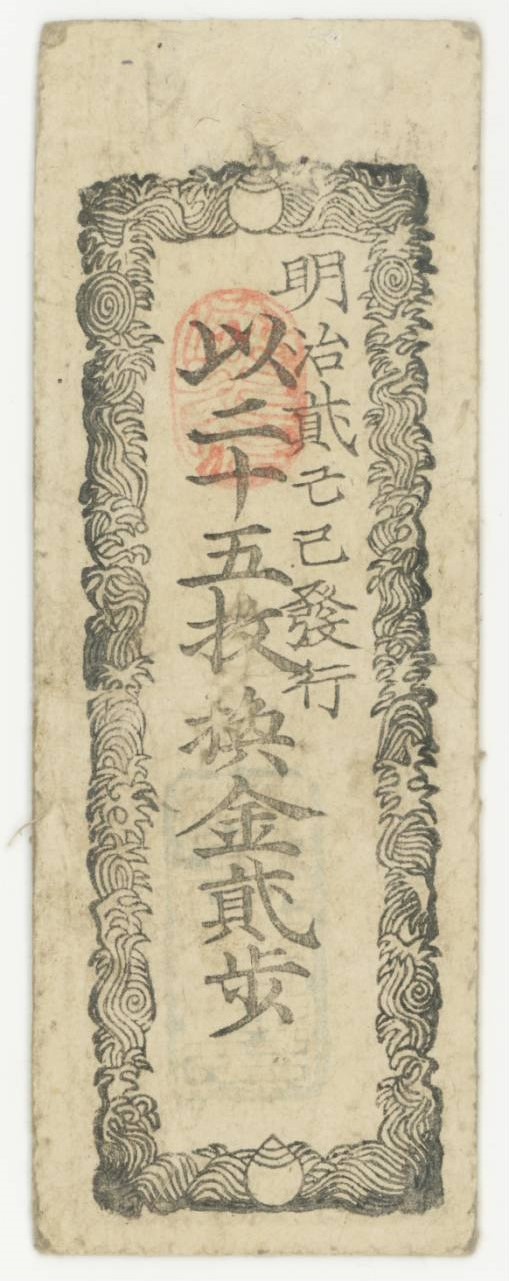 明治貳己巳發行
以二十五枚換金貳歩